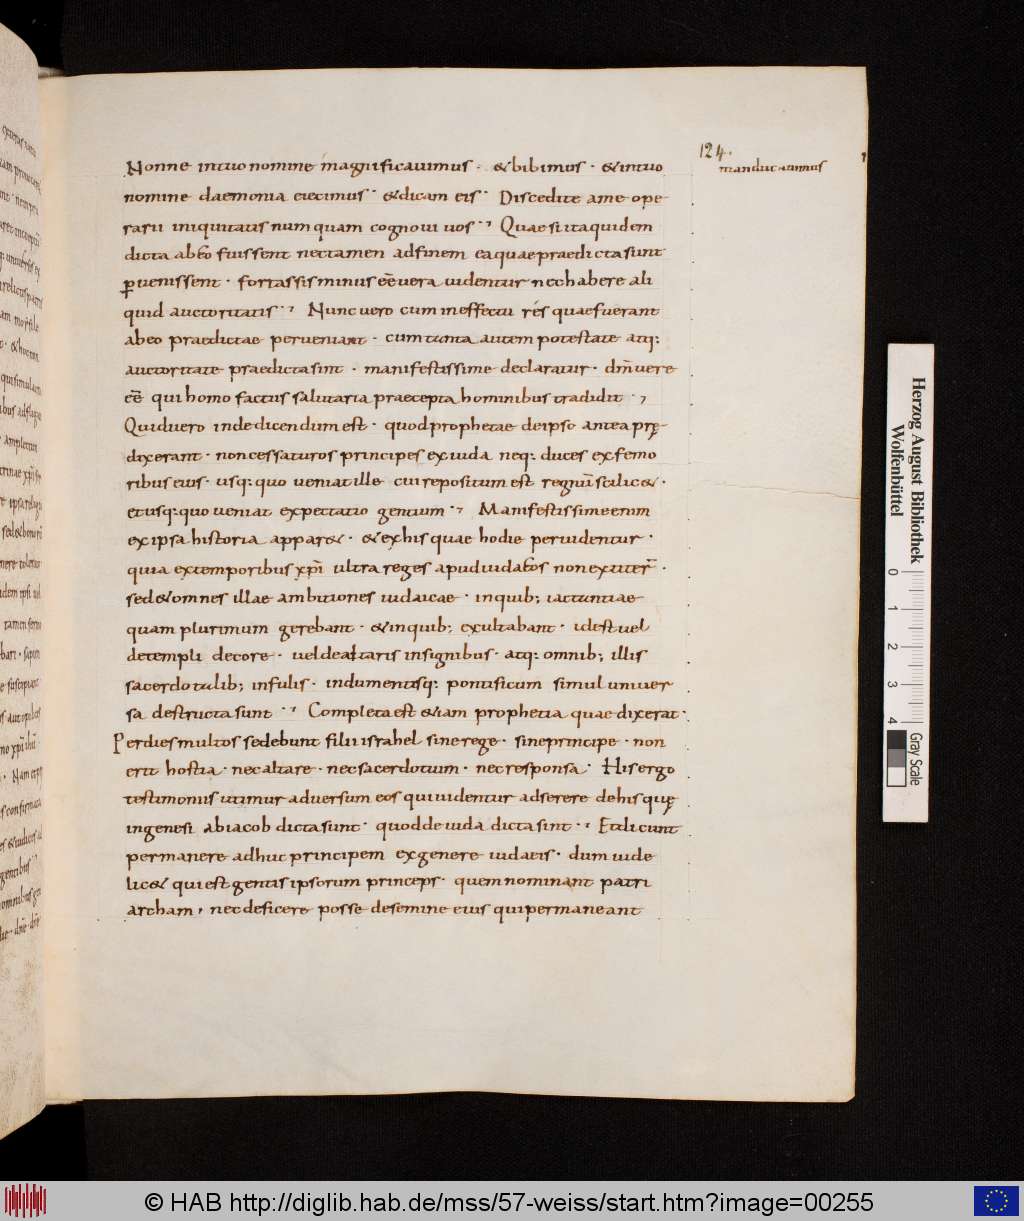 124.
manducauimus
Nonne in tuo nomine magnificauimus · & bibimus · & in tuo
nomine daemonia eiecimus · & dicam eis · Discedite a me ope
rarii iniquitatis numquam cognoui uos · Quae si ita quidem
dicta ab eo fuissent nec tamen ad finem ea quae praedicta sunt
ꝑuenissent · fortassis minus eē uera uidentur nec habere ali
quid auctoritatis · Nunc uero cum in effectu res quae fuerant
ab eo praedictae perueniant · cum tanta autem potestate atq:
auctoritate praedicta sint · manifestissime declaratur · dm̄ uere
eē qui homo factus salutaria praecepta hominibus tradidit ·
Quid uero inde dicendum est · quod prophetae de ipso antea prę
dixerant · non cessaturos principes ex iuda neq: duces ex femo
ribus eius · usq: quo ueniat ille cui repositum est regnū scilic& ·
et usq: quo ueniat expectatio gentium · Manifestissime enim
ex ipsa historia appar& · & ex his quae hodie peruidentur ·
quia ex temporibus xp̄i ultra reges apud iudaeos non extiter̄ ·
sed & omnes illae ambitiones iudaicae · in quib; iactantiae
quam plurimum gerebant · & in quib; exultabant · id est uel
de templi decore · uel de altaris insignibus · atq: omnib; illis
sacerdotalib; infulis · indumentisq: pontificum simul uniuer
sa destructa sunt · Completa est &iam prophetia quae dixerat ·
Per dies multos sedebunt filii israhel sine rege · sine principe · non
erit hostia · nec altare · nec sacerdotium · nec responsa · His ergo
testimoniis utimur aduersum eos qui uidentur adserere de his quę
in genesi ab iacob dicta sunt · quod de iuda dicta sint · Et dicunt
permanere adhuc principem ex genere iudaeis · dum uide
lic& qui est gentis ipsorum princeps · quem nominant patri
archam, nec deficere posse de semine eius qui permaneant
Herzog August Bibliothek
Wolfenbüttel
0 1 2 3 4
Gray Scale
© HAB http://diglib.hab.de/mss/57-weiss/start.htm?image=00255